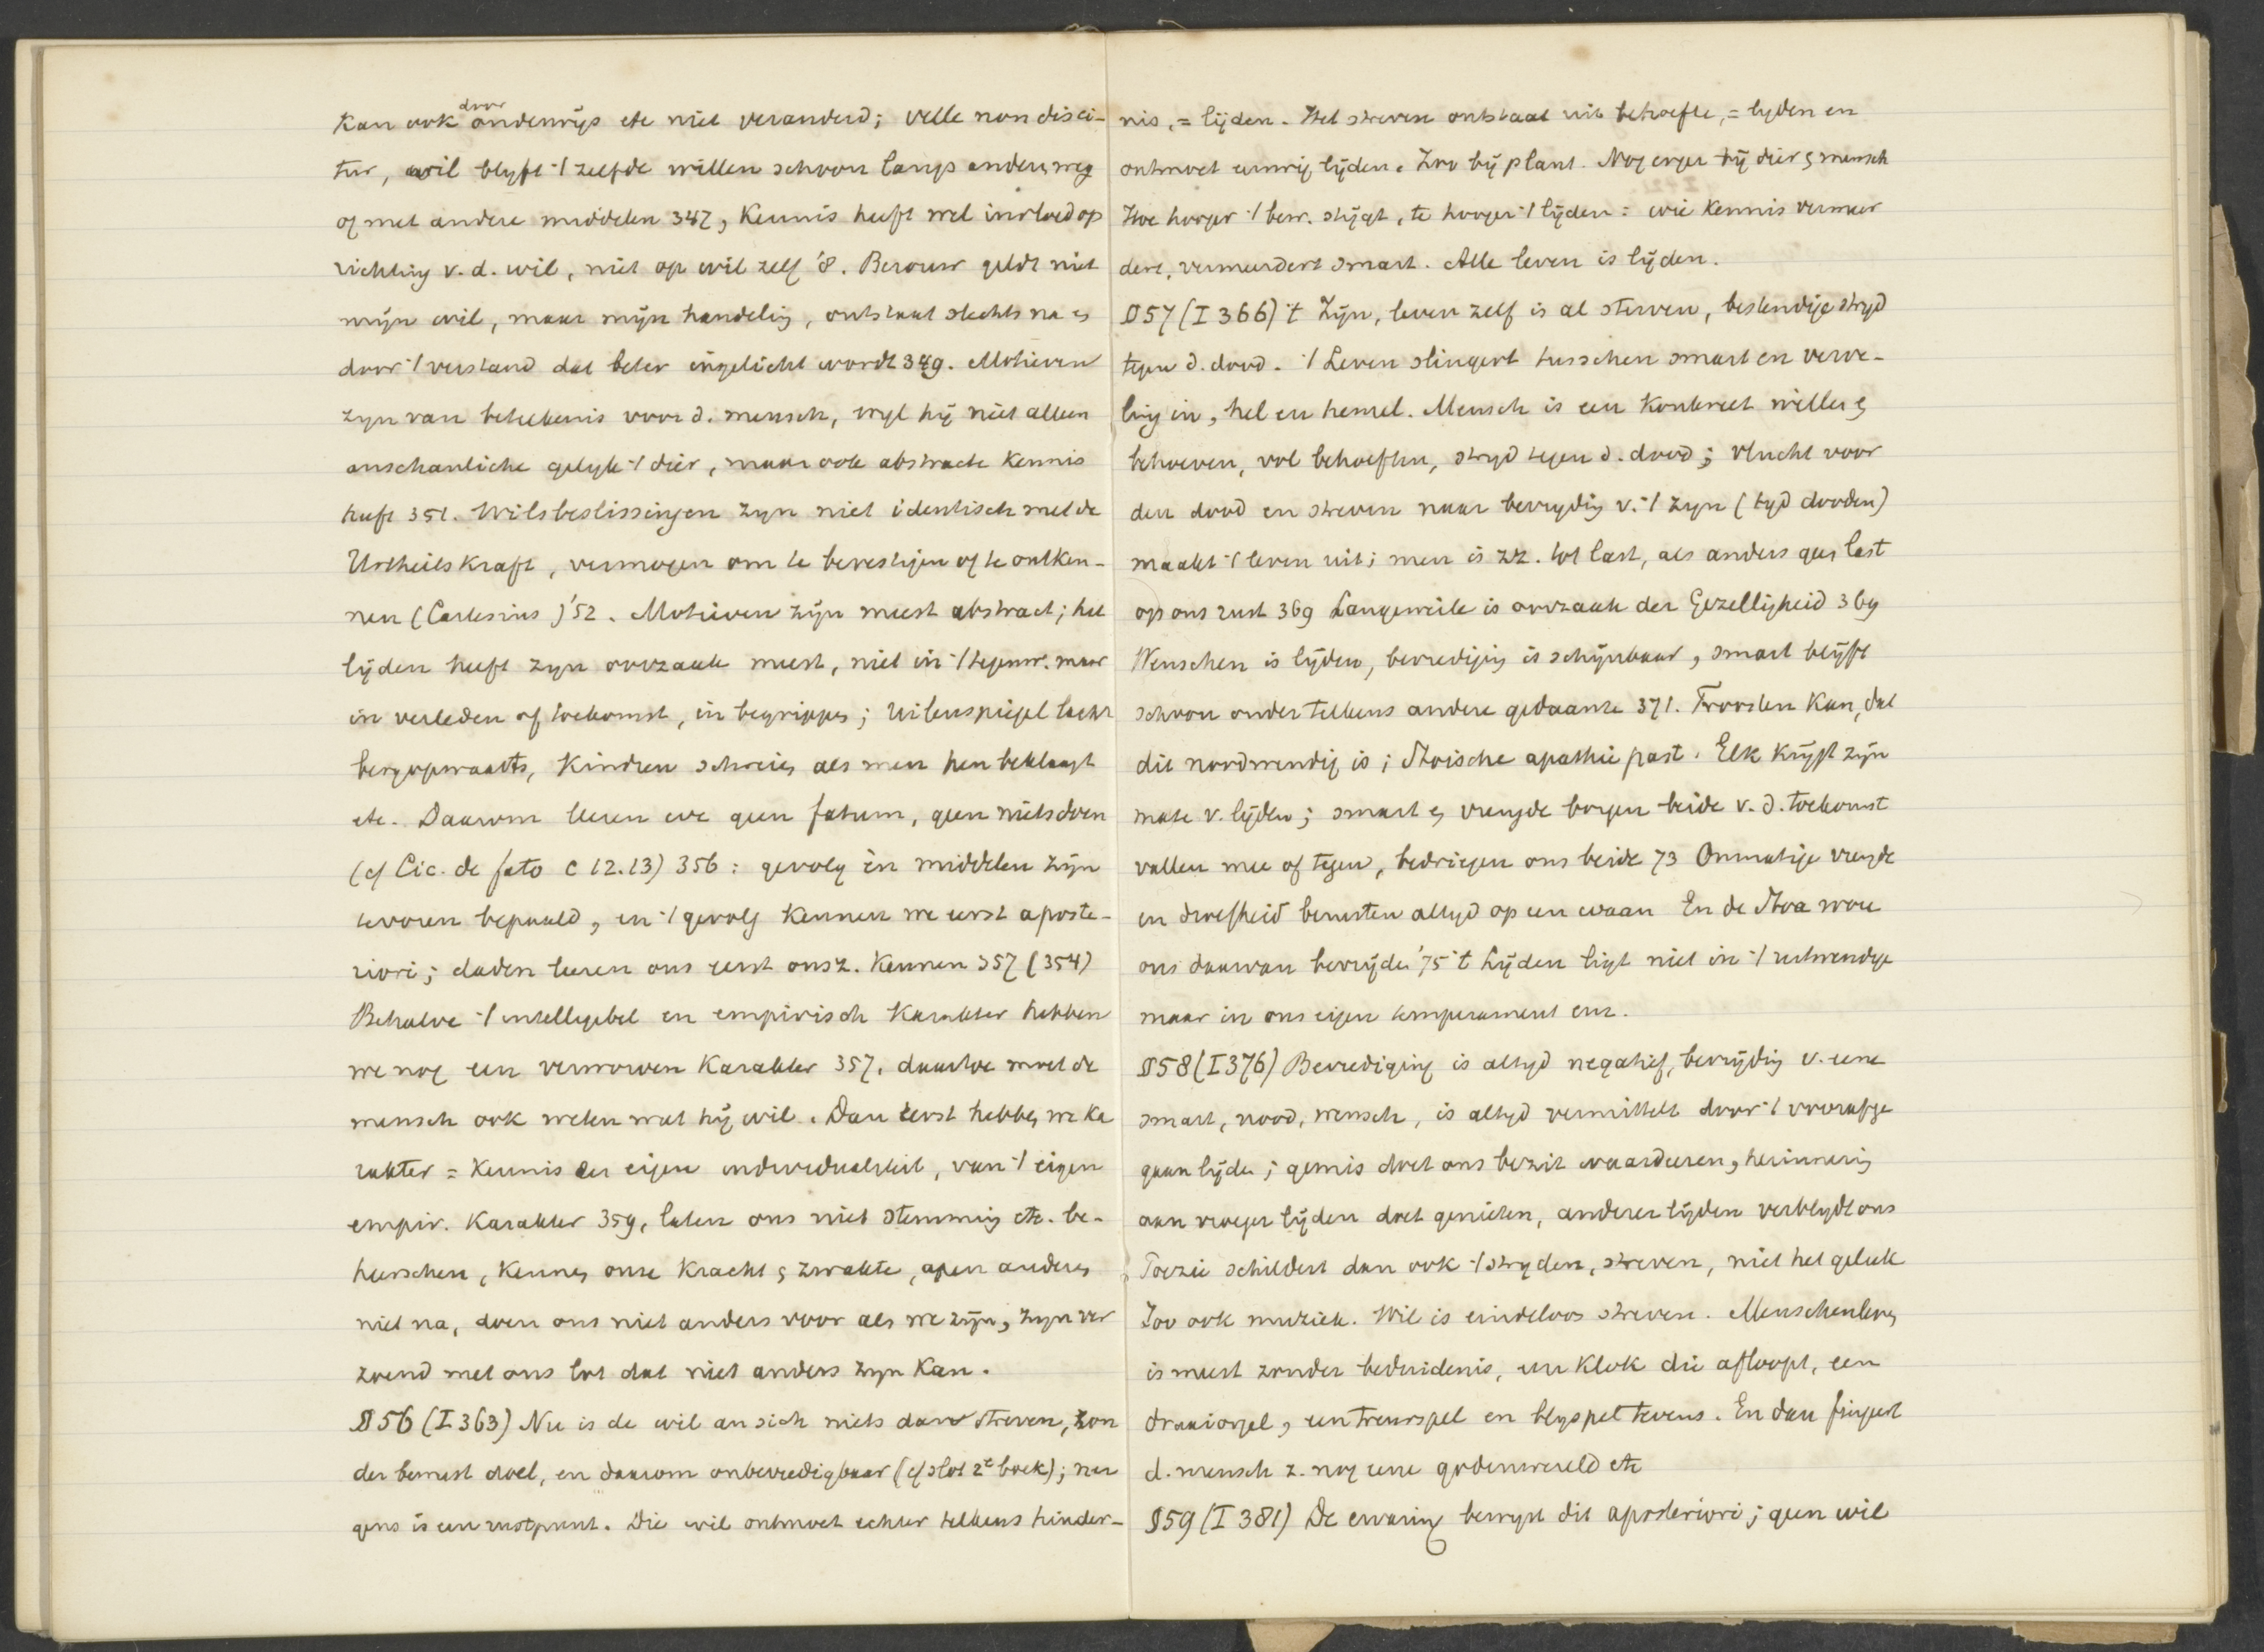 kan ook door onderwijs etc niet veranderd; velle non disci-
tur, wil blyft 't zelfde willen schoon langs anderen weg
of met andere middelen 347, Kennis heeft wel invloed op
richting v.d. wil, niet op wil zelf '8. Berouw geldt niet
mijn wil, maar mijn handeling, ontstaat slechts na en
door 't verstand dat beter ingelicht wordt 349. Motieven
zyn van beteekenis voor d. mensch, wyl hij niet alleen
anschauliche gelyk 't dier, maar ook abstracte Kennis
heeft 351. Wilsbeslissingen zyn niet identisch met de
Urtheilskraft, vermogen om te bevestigen of te ontken-
nen (Cartesius) '52. Motieven zijn meest abstract; het
lijden heeft zyn oorzaak meest, niet in 't tegenw. maar
in verleden of toekomst, in begrippen; Uilenspiegel lacht
bergopwaarts, Kindren schreien als men hen beklaagt
etc. Daarom leeren we geen fatum, geen nietsdoen
(cf Cic. de fato c 12.13) 356: gevolg èn middelen zijn
tevoren bepaald, en 't gevolg kennen we eerst aposte-
riori; daden leeren ons eerst onsz. kennen 357 (354)
Behalve 't intelligebel en empirisch Karakter hebben
we nog een verworven Karakter 357, daartoe moet de
mensch ook weten wat hij wil. Dan eerst hebben we Ka
rakter = Kennis der eigen individualiteit, van 't eigen
empir. Karakter 359, laten ons niet stemming etc. be-
heerschen, kennen onze Kracht en zwakte, apen anderen
niet na, doen ons niet anders voor als we zijn, zyn ver
zoend met ons lot dat niet anders zyn kan.
§56 (I 363) Nu is de wil an sich niets dan streven, zon
der bewust doel, en daarom onbevredigbaar (cf slot 2e boek); ner
gens is een rustpunt. Die wil ontmoet echter telkens hinder-
nis, = lijden. Het streven ontstaat uit behoefte, = lyden en
ontmoet eeuwig lijden. Zoo bij plant. Nog erger bij dier en mensch
Hoe hooger 't bew. stijgt, te hooger 't lijden: wie kennis vermeer
dert, vermeerdert smart. Alle leven is lijden.
§57 (I 366) 't Zijn, leven zelf is al sterven, bestendige stryd
tegen d. dood. 't Leven slingert tusschen smart en verve-
ling in, hel en hemel. Mensch is een konkreet willen en
behoeven, vol behoeften, stryd tegen d. dood; vlucht voor
den dood en streven naar bevrydig v. 't zyn (tyd dooden)
maakt 't leven uit; men is zz. tot last, als anders geen last
op ons rust 369 Langeweile is oorzaak der Gezelligheid 369
Wenschen is lijden, bevrediging is schijnbaar, smart blijft
schoon onder telkens andere gedaante 371. Troosten kan, dat
dit noodwendig is; Stoische apathie past. Elk krijgt zijn
mate v. lijden; smart en vreugde borgen beide v. d. toekomst
vallen mee of tegen, bedriegen ons beide 73 Onmatige vreugde
en droefheid berusten altyd op een waan En de Stoa wou
ons daarvan bevrijden '75 't Lijden ligt niet in 't uitwendige
maar in ons eigen temperament enz.
§58 (I 376) Bevrediging is altyd negatief, bevrijding v. eene
smart, nood, wensch, is altyd vermittelt door 't voorafge
gaan lijden; gemis doet ons bezit waardeeren, herinnering
aan vroeger lijden doet genieten, anderer lijden verblydt ons
Poezie schildert dan ook 't stryden, streven, niet het geluk
Zoo ook muziek. Wil is eindeloos streven. Menschenleven
is meest zonder beduidenis, een klok die afloopt, een
draaiorgel, een treurspel en blyspel tevens. En dan fingeert
d. mensch z. nog eene godenwereld etc
§59 (I 381) De ervaring bewyst dit aposteriori; geen wil